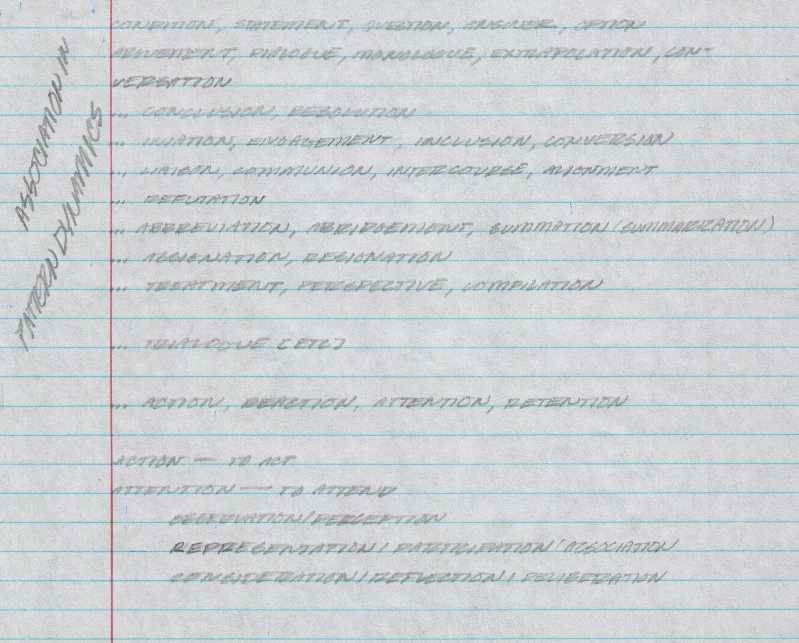 ASSOCIATION IN
PATTERN DYNAMICS
CONDITION, STATEMENT, QUESTION, ANSWER, OPTION
ARGUEMENT, DIALOGUE, MONOLOGUE, EXTRAPOLATION, CON-
VERSATION
... CONCLUSION, RESOLUTION
... CITATION, ENGAGEMENT, INCLUSION, CONVERSION
... LIAISON, COMMUNION, INTERCOURSE, ALIGNMENT
... REFUTATION
... ABBREVIATION, ABRIDGEMENT, SUMMATION (SUMMARIZATION)
... ASSIGNATION, RESIGNATION
... TREATMENT, PERSPECTIVE, COMPILATION
... TRIALOGUE [ETC]
... ACTION, REACTION, ATTENTION, RETENTION
ACTION — TO ACT
ATTENTION — TO ATTEND
OBSERVATION/PERCEPTION
REPRESENTATION/PARTICIPATION/ASSOCIATION
CONSIDERATION/REFLECTION/DELIBERATION